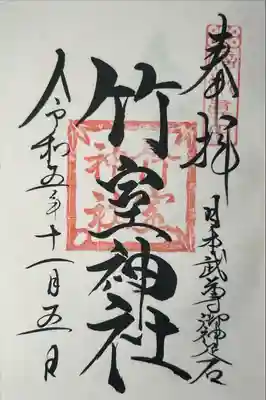 奉拝
日本武尊御腰掛石
竹室神社
令和五年十一月五日